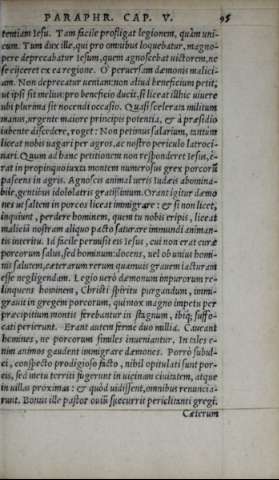 PARAPHR. CAP. V. 95
tentiam Iesu. Tam facile profligat legionem, quàm uni-
cum. Tum dux ille, qui pro omnibus loquebatur, magno-
pere deprecabatur Iesum, quem agnoscebat uictorem, ne
se eijceret ex ea regione. O peruersam dæmonis malici-
am. Non deprecatur ueniam: non aliud beneficium petit,
ut ipsi sit melius: pro beneficio ducit, si liceat illhic uiuere
ubi plurima sit nocendi occasio. Quasi scelerata militum
manus, urgente maiore principis potentia, & à præsidio
iubente discedere, roget: Non petimus salarium, tantum
liceat nobis uagari per agros, ac nostro periculo latroci-
nari. Quum ad hanc petitionem non responderet Iesus, e-
rat in propinquo iuxta montem numerosus grex porcorũ
pascens in agris. Agnosces animal ueris Iudæis abomina-
bile, gentibus idololatris gratissimum. Orant igitur dæmo
nes ut saltem in porcos liceat immigrare: & si non licet,
inquiunt, perdere hominem, quem tu nobis eripis, liceat
maliciã nostram aliquo pacto saturare immundi animan-
tis interitu. Id facile permisit eis Iesus, cui non erat curæ
porcorum salus, sed hominum: docens, uel ob unius homi-
nis salutem, cæterarum rerum quamuis grauem iacturam
esse negligendam. Legio uerò dæmonum impurorum re-
linquens hominem, Christi spiritu purgandum, immi-
grauit in gregem porcorum, qui mox magno impetu per
præcipitium montis ferebantur in stagnum, ibiq; suffo-
cati perierunt. Erant autem ferme duo millia. Caueant
homines, ne porcorum similes inueniantur. In tales e-
nim animos gaudent immigrare dæmones. Porrò subul-
ci, conspecto prodigioso facto, nihil opitulati sunt por-
cis, sed metu territi fugerunt in uicinam ciuitatem, atque
in uillas proximas: & quod uidissent, omnibus renuncia-
runt. Bonus ille pastor ouiũ succurrit periclitanti gregi.
Cæterum